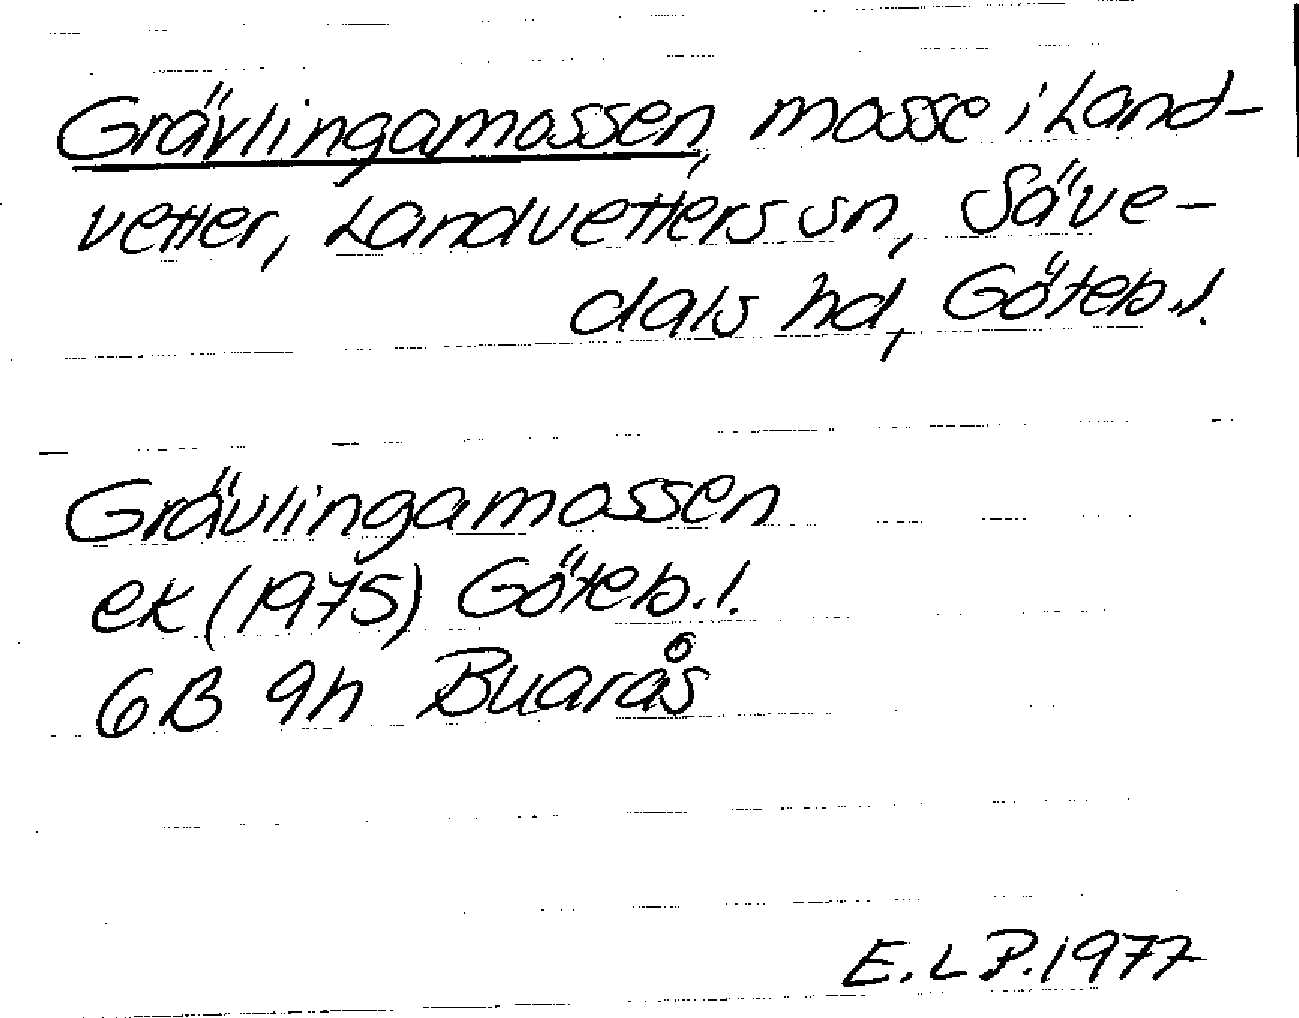 Grävlingamossen, mosse i Land-
vetter, Landvetters sn, Säve-
dals hd, Göteb.l.
Grävlingamossen
ek (1975) Göteb.l.
6B 9h Buarås
E.L.P. 1977